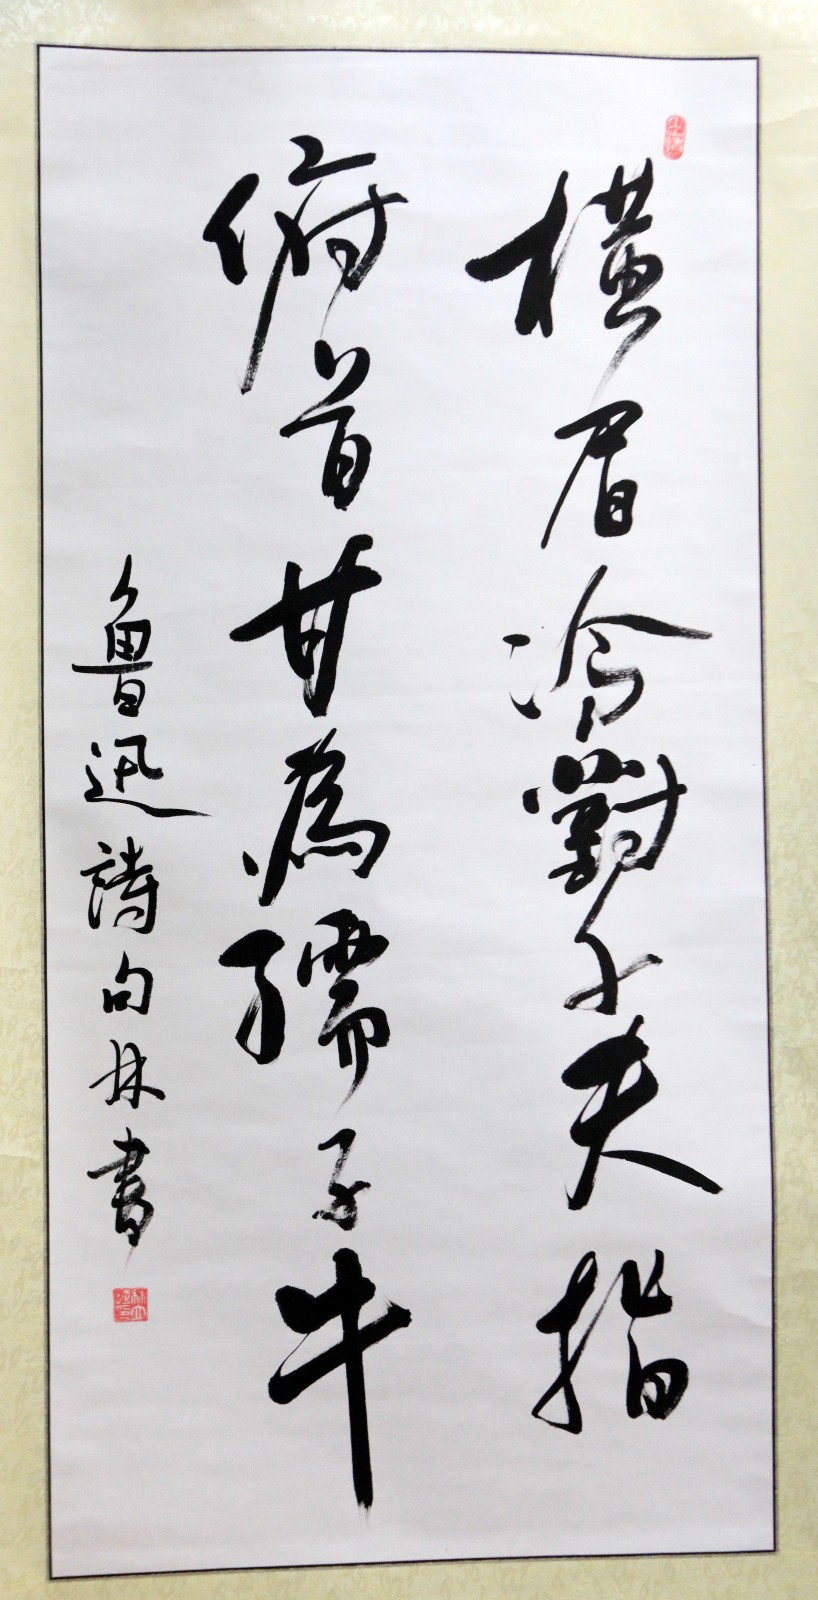 横眉冷對千夫指
俯首甘為孺子牛
魯迅詩句林書